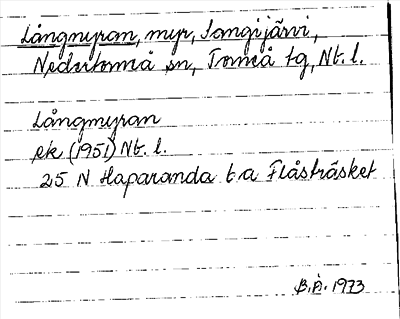 Långmyran, myr, Sangijärvi,
Nedertorneå sn, Torneå tg, Nb. l.
Långmyran
ek (1951) Nb. l.
25 N Haparanda b a Flåsträsket
B.Å. 1973